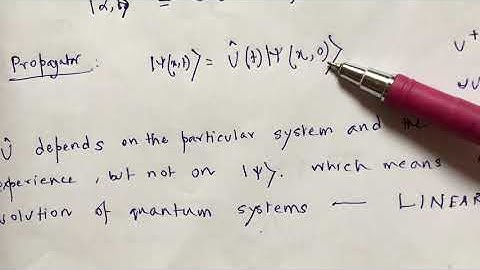 |α,
Propagator : |Ψ(x,t)⟩ = Û(t)|Ψ(x,0)⟩
U†
Û depends on the particular system and the
experience, but not on |Ψ⟩. which means
volution of quantum systems — LINEAR